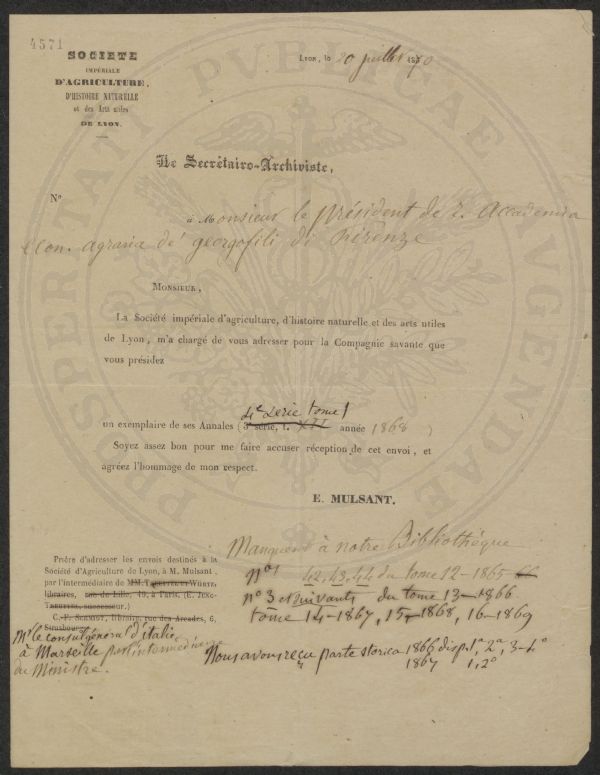 4571
SOCIÉTÉ
IMPÉRIALE
D'AGRICULTURE,
D'HISTOIRE NATURELLE
et des Arts utiles
DE LYON.
LYON, le 20 juillet 1870
Le Secrétaire-Archiviste,
N°
à Monsieur le président de l'Accademia
econ. agraria de' georgofili di Firenze
MONSIEUR,
La Société impériale d'agriculture, d'histoire naturelle et des arts utiles
de Lyon, m'a chargé de vous adresser pour la Compagnie savante que
vous présidez
4e serie tome 1
un exemplaire de ses Annales (3e série, t. XII année 1868 )
Soyez assez bon pour me faire accuser réception de cet envoi, et
agréez l'hommage de mon respect.
E. MULSANT.
Prière d'adresser les envois destinés à la
Société d'Agriculture de Lyon, à M. Mulsant,
par l'intermédiaire de MM. TREUTTEL et WURTZ,
libraires, rue de Lille, 19, à Paris. (E. JUNG-
TREUTTEL, successeur.)
C.-F. SCHMIDT, libraire, rue des Arcades, 6,
Strasbourg.
Mr le consul général d'italie
à Marseille par l'intermédiaire
du Ministre.
Manquent à notre Bibliothèque
Nos 42, 43, 44 du tome 12 - 1865 66
n° 3 et suivants du tome 13 - 1866
tome 14 - 1867, 15 - 1868, 16 - 1869
Nous avons reçu parte storica 1866 disp. 1a, 2a, 3-4a
1867 1, 2a
PROSPERITATI PVBLICAE AVGENDAE